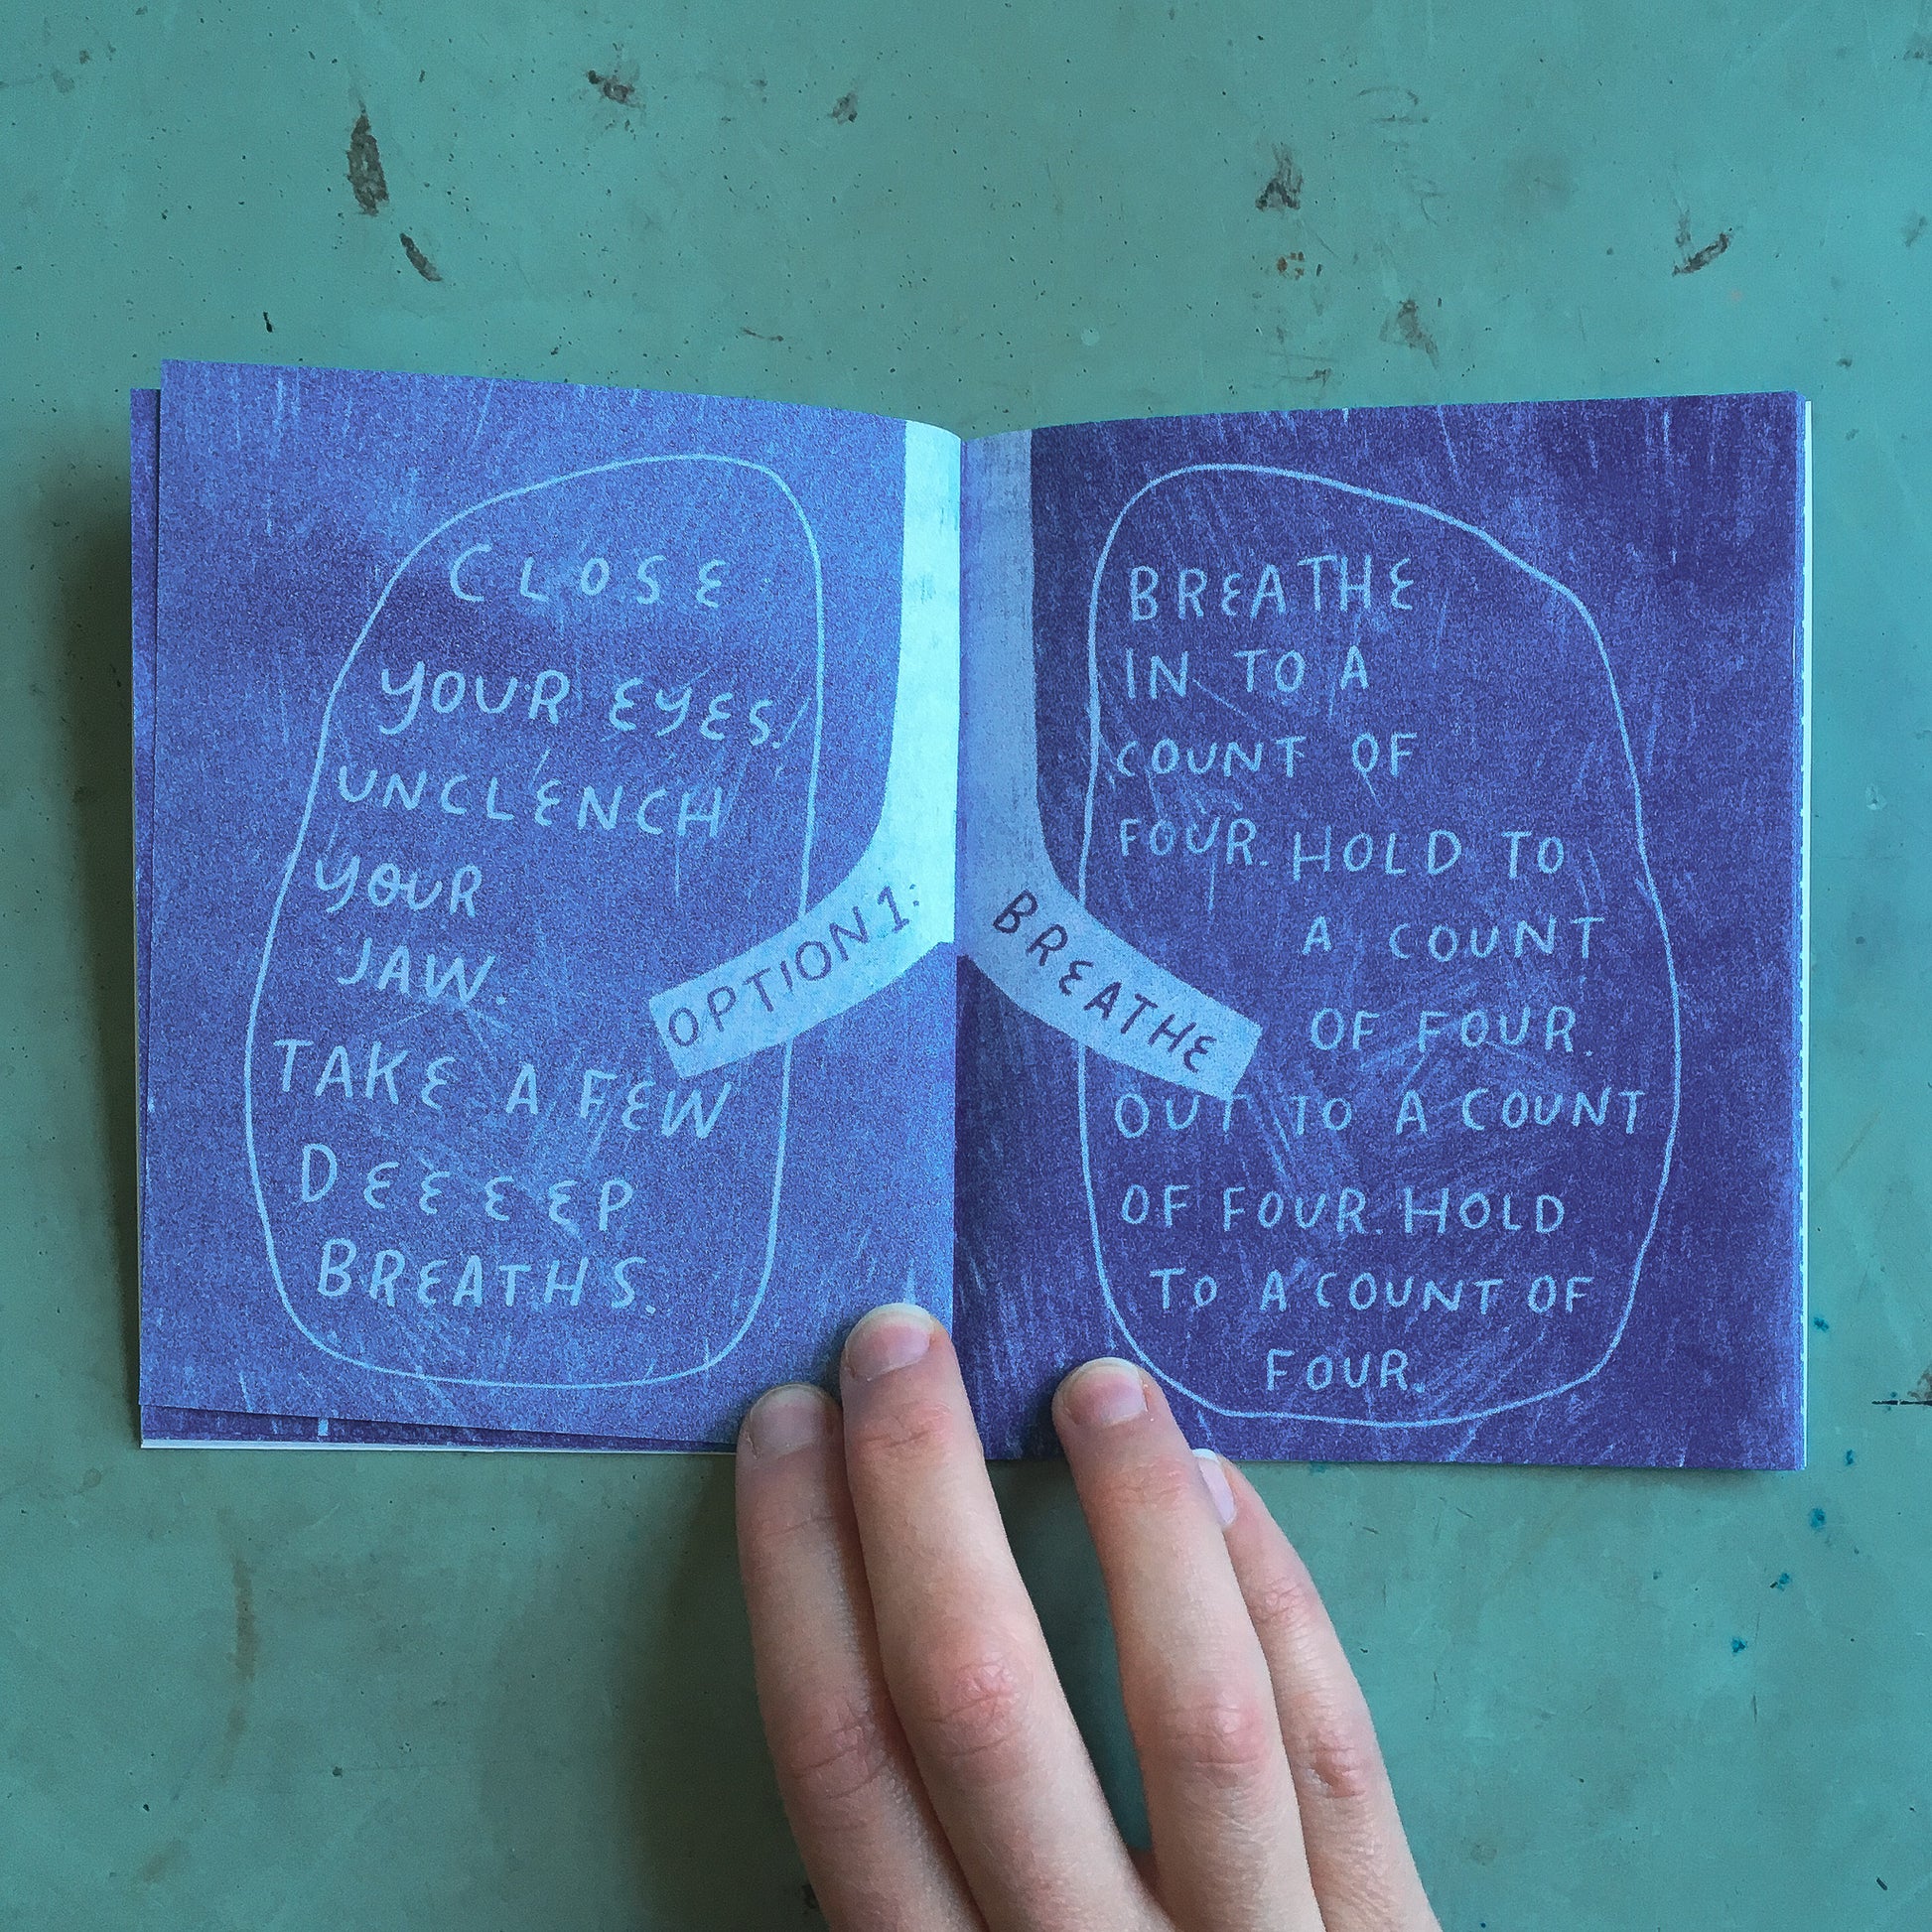 CLOSE
YOUR EYES.
UNCLENCH
YOUR
JAW.
TAKE A FEW
DEEEEP
BREATHS.
OPTION 1:
BREATHE
BREATHE
IN TO A
COUNT OF
FOUR. HOLD TO
A COUNT
OF FOUR.
OUT TO A COUNT
OF FOUR. HOLD
TO A COUNT OF
FOUR.